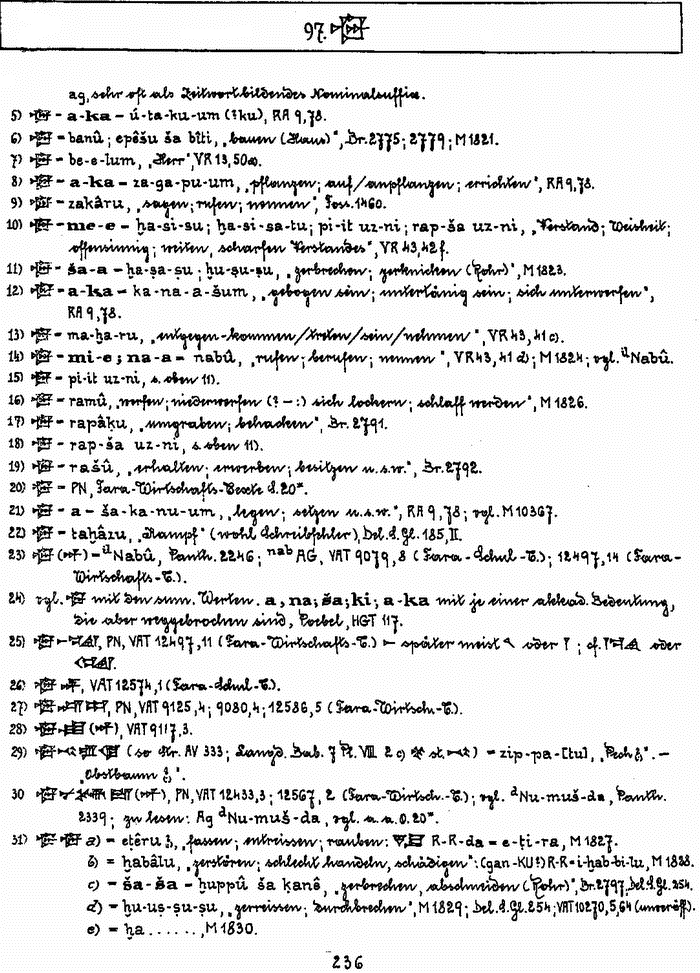 97. 𒀝
ag, sehr oft als Zeitwortbildendes Nominalsuffix.
5) 𒀝 = a-ka = ú-ta-ku-um (?ku), RA 9,78.
6) 𒀝 = banû; epêšu ša bîti, „bauen (Haus)", Br. 2775; 2779; M 1821.
7) 𒀝 = be-e-lum, „Herr", VR 13,50a.
8) 𒀝 = a-ka = za-ga-pu-um, „pflanzen; auf/anpflanzen; errichten", RA 9,78.
9) 𒀝 = zakâru, „sagen; rufen; nennen", Foss. 1460.
10) 𒀝 = me-e = ḫa-si-su; ḫa-si-sa-tu; pi-it uz-ni; rap-ša uz-ni, „Verstand; Weisheit;
offensinnig; weiten, scharfen Verstandes", VR 43,42f.
11) 𒀝 = ša-a = ḫa-ṣa-ṣu; ḫu-ṣu-ṣu, „zerbrechen; zerknicken (Rohr)", M 1823.
12) 𒀝 = a-ka = ka-na-a-šum, „gebogen sein; untertänig sein; sich unterwerfen",
RA 9,78.
13) 𒀝 = ma-ḫa-ru, „entgegen-kommen/treten/sein/nehmen", VR 43, 41c).
14) 𒀝 = mi-e; na-a = nabû, „rufen; berufen; nennen", VR 43, 41 d); M 1824; vgl. ilNabû.
15) 𒀝 = pi-it uz-ni, s. oben 11).
16) 𒀝 = ramû, „werfen; niederwerfen (? – :) sich lockern; schlaff werden", M 1826.
17) 𒀝 = rapâḳu, „umgraben; behacken", Br. 2791.
18) 𒀝 = rap-ša uz-ni, s. oben 11).
19) 𒀝 = rašû, „erhalten; erwerben; besitzen u.s.w.", Br. 2792.
20) 𒀝 = PN, Fara-Wirtschafts-Texte S. 20*.
21) 𒀝 = a = ša-ka-nu-um, „legen; setzen u.s.w.", RA 9,78; vgl. M 10367.
22) 𒀝 = taḫâzu, „Kampf" (wohl Schreibfehler), Del. S. Gl. 185, II.
23) 𒀝 (𒀭) = ilNabû, Panth. 2246; nab AG, VAT 9079,8 (Fara-Schul-T.); 12497,14 (Fara-
Wirtschafts-T.).
24) vgl. 𒀝 mit den sum. Werten. a, na; ša; ki; a-ka mit je einer akkad. Bedeutung,
die aber weggebrochen sind, Poebel, HGT 117.
25) 𒀝, PN, VAT 12497,11 (Fara-Wirtschafts-T.) später meist oder ; cf. oder
26) 𒀝 , VAT 12574,1 (Fara-Schul-T.).
27) 𒀝 , PN, VAT 9125,4; 9080,4; 12586,5 (Fara-Wirtsch.-T.).
28) 𒀝 (𒀭), VAT 9117,3.
29) 𒀝 (so Str. AV 333; Langd. Bab. 7 Pt. VIII 2 c) st. ) = zip-pa-[tu], „Pech". –
„Obstbaum".
30 𒀝 (𒀭), PN, VAT 12433,3; 12567, 2 (Fara-Wirtsch.-T.); vgl. dNu-muš-da, Panth.
2339; zu lesen: Ag dNu-muš-da, vgl. a.a.O. 20*.
31) 𒀝 𒀝 a) = eṭêru, „fassen; entreissen; rauben: R-R-da = e-ṭi-ra, M 1827.
b) = ḫabâlu, „zerstören; schlecht handeln, schädigen": (gan-KU?) R-R = i-ḫab-bi-lu, M 1828.
c) = ša-ša = ḫuppû ša ḳanê, „zerbrechen, abschneiden (Rohr)", Br. 2797, Del. S. Gl. 254.
d) = ḫu-uṣ-ṣu-ṣu, „zerreissen; durchbrechen", M 1829; Del. S. Gl. 254; VAT 10270,5,64 (unveröff.).
e) = ḫa ......, M 1830.
236